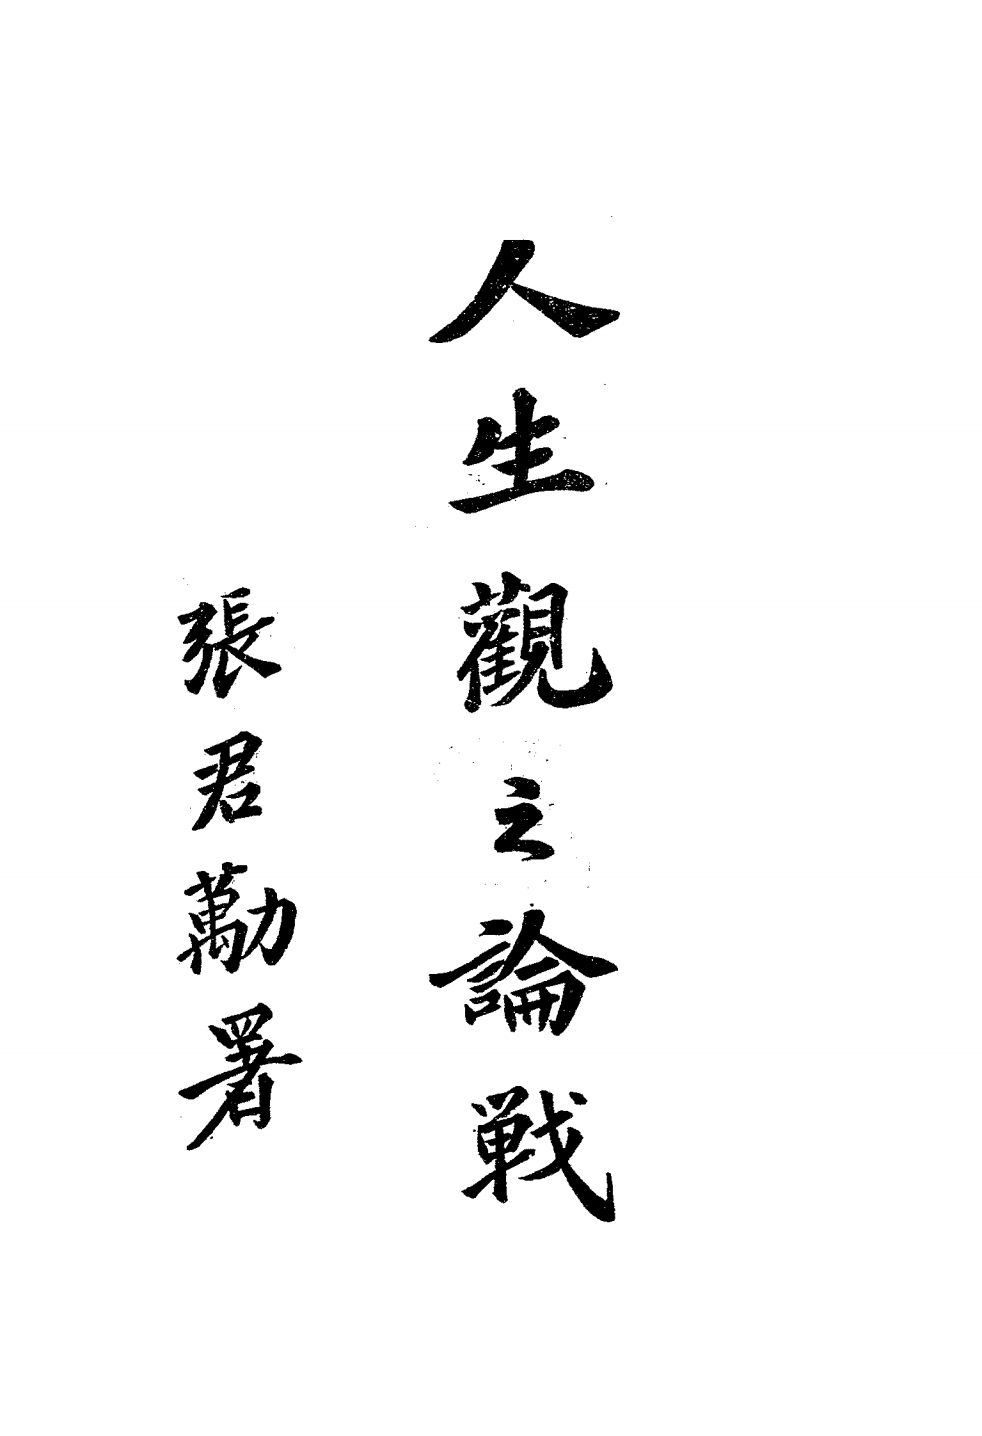 人生觀之論戰
張君勱署